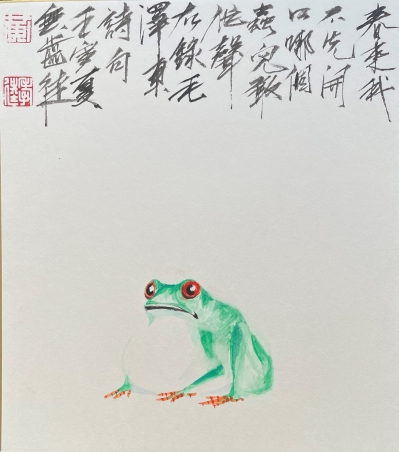 春來我
不先開
口哪個
蟲兒敢
作聲
右錄毛
澤東
詩句
壬寅夏
無